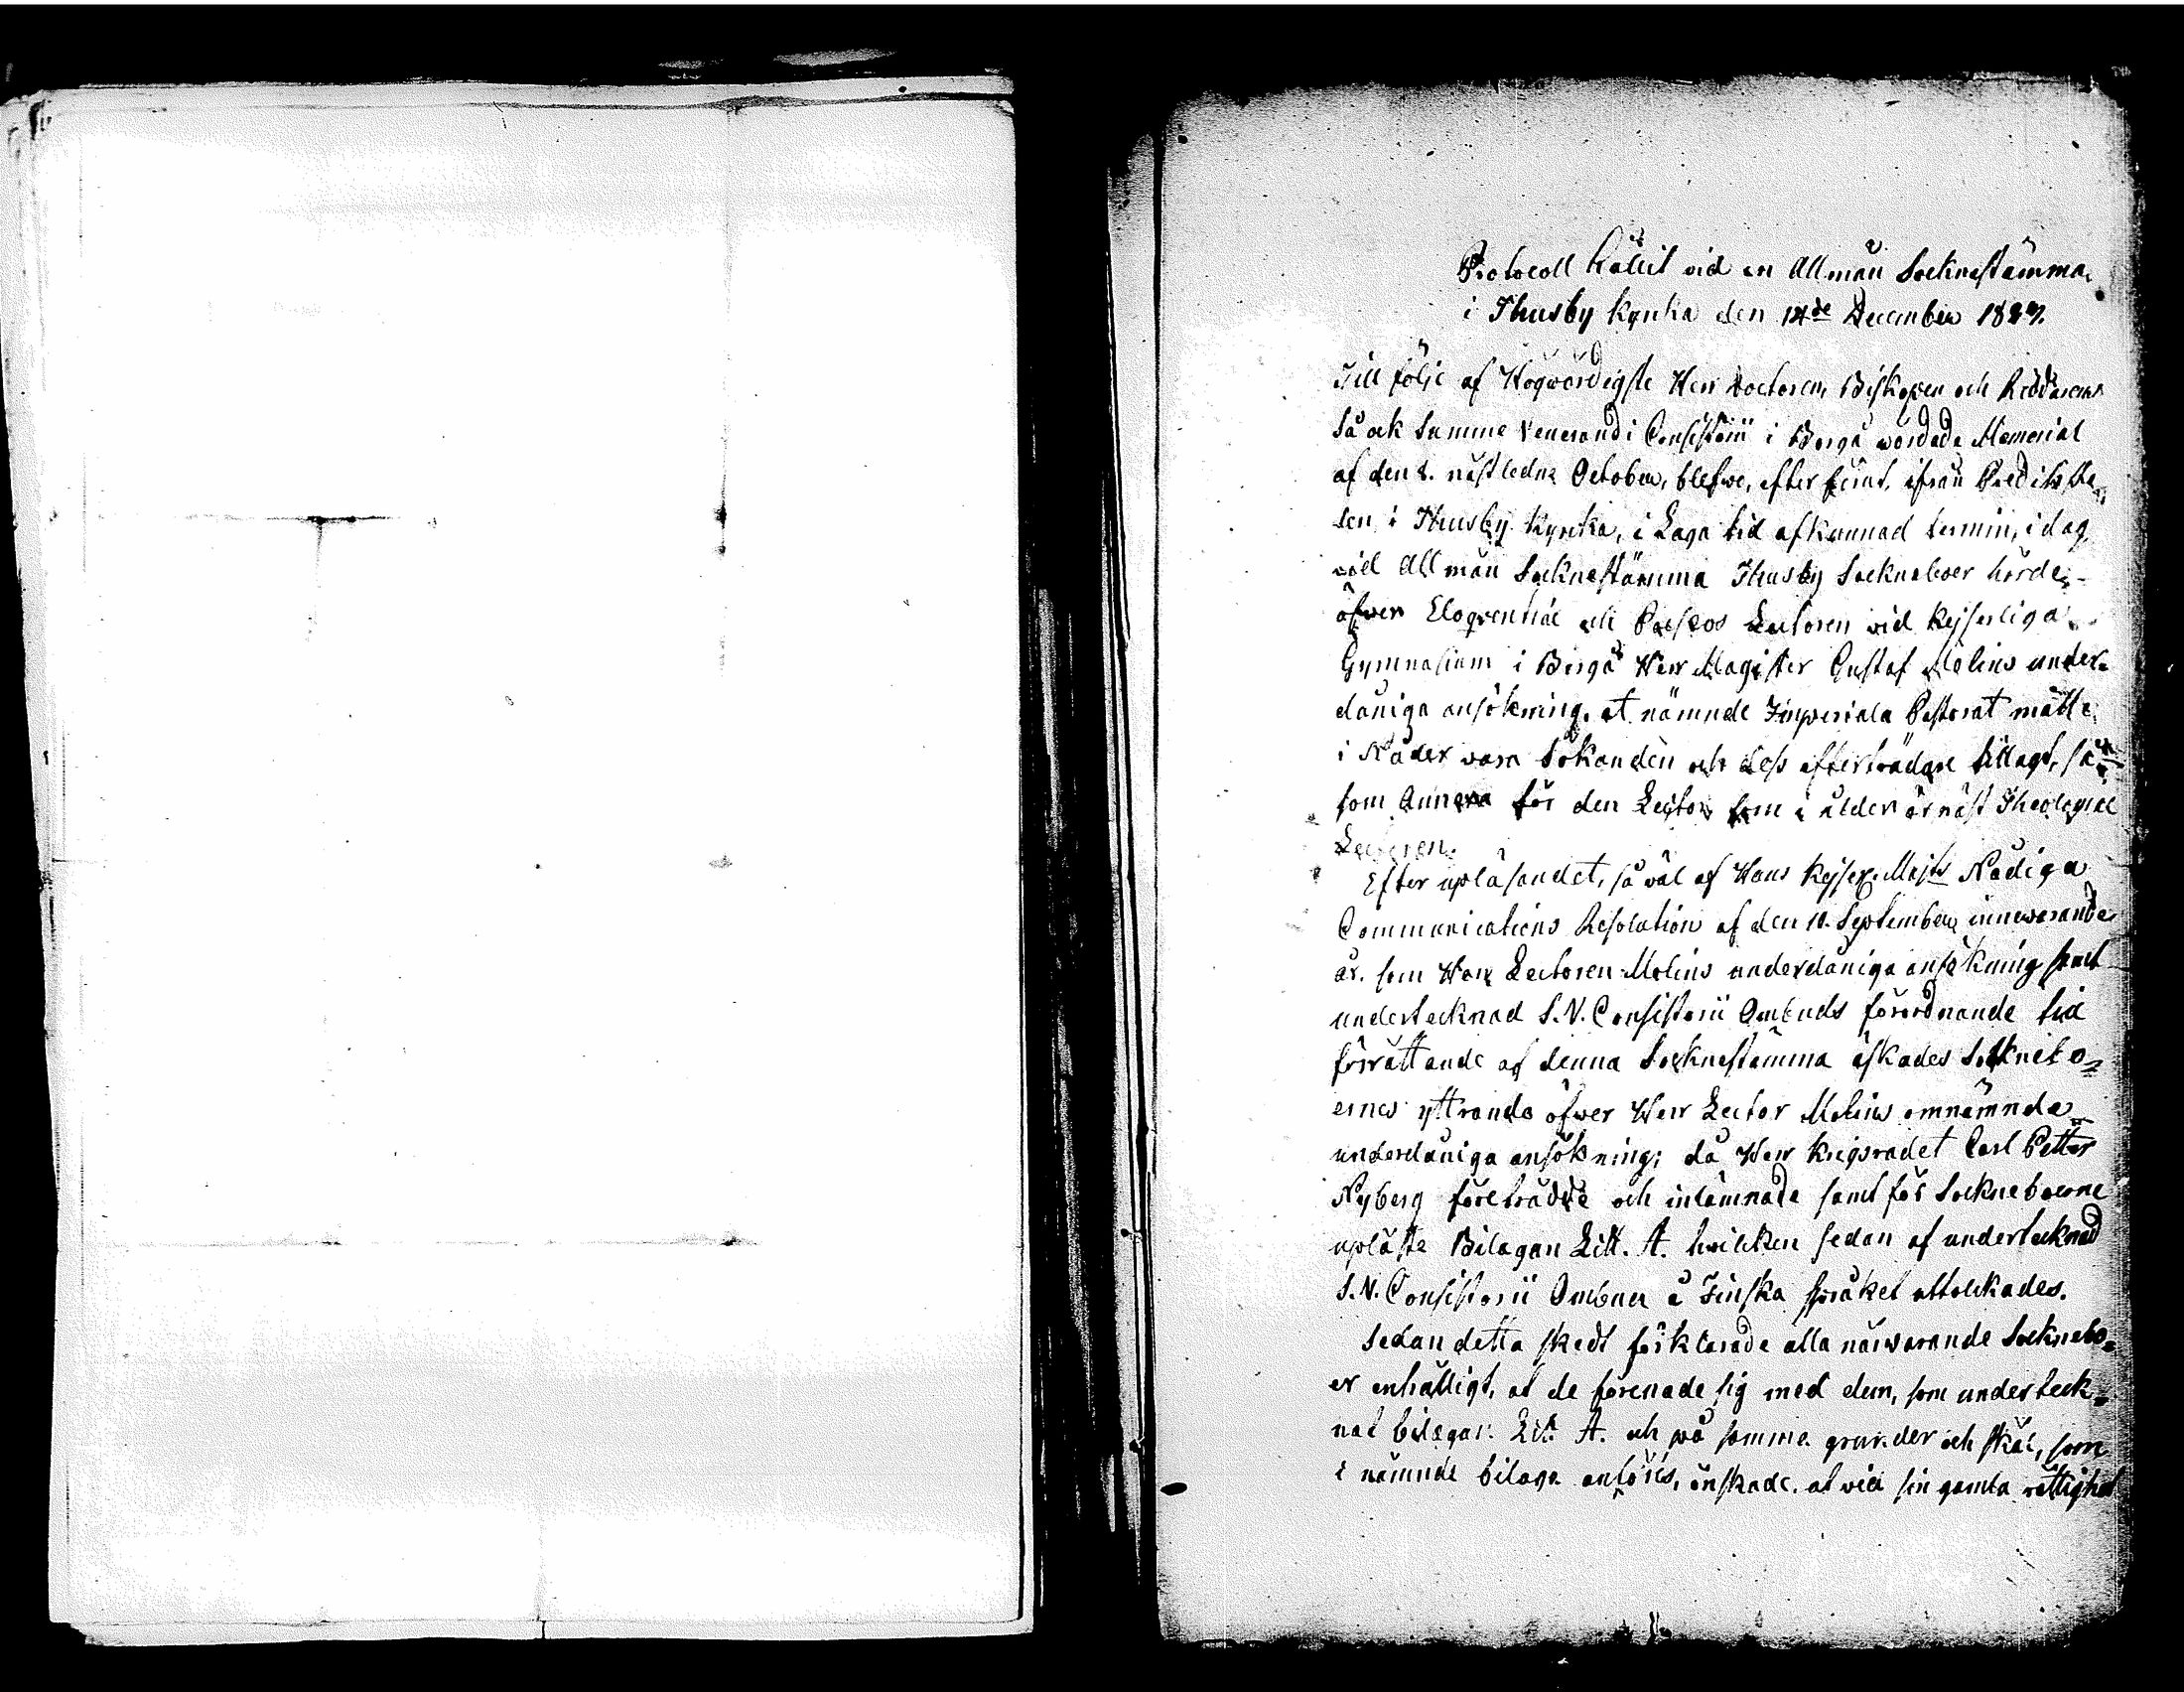 Protocoll hållit vid en Allmän Socknestämma
i Thusby kyrka den 14de December 1827.
Till följe af Högwördigste Herr Doctorens Biskopen och Riddarens
så ock Summe Venerandi Consistorii i Borgå wördade Memorial
af den 8. nästledne October, blefwo, efter härint. ifrån Predikosto-
len i Thusby kyrka, i Laga tid afkunnad termin, i dag,
vid Allmän Socknestämma Thusby Socknaboer hörde,
öfwer Eloqventiæ och Poëseos Lectoren vid Kejserliga
Gymnasium i Borgå Herr Magister Gustaf Molins under-
dåniga ansökning, at nämnde Imperiala Pastorat måtte
i Nåder vara Sökanden och dess efterträdare tillagt, så
som Annexa för den Lector som i ålder är näst Theologiæ
Lectoren.
Efter upläsandet, så väl af Hans Kejserl. Majts Nådiga
Communications Resolution af den 10. September innewarande
år, som Herr Lectoren Molins underdåniga ansökning samt
undertecknad S.V. Consistorii Ombuds förordnande till
förrättande af denna Socknestämma äskades Socknebo-
ernes yttrande öfwer Herr Lector Molins omnämnda
underdåniga ansökning; då Herr Krigsrådet Carl Petter
Nyberg företrädde och inlämnade samt för Sockneboerne
upläste Bilagan Litt. A. hwilcken sedan af undertecknad
S.V. Consistorii Ombud å Finska språket uttolckades.
Sedan detta skedt förklarade alla närwarande Sockneбо-
er enhälligt, at de förenade sig med dem, som underteck-
nat bilagan Litt A. och på samma grunder och skäl, som
i nämnde bilaga anföres, önskade, at vid sin gamla rättighet